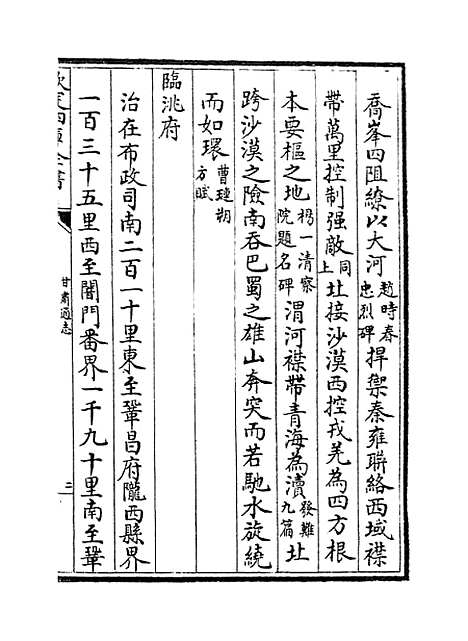 喬峯四阻繚以大河趙時春忠烈碑捍禦秦雍聯絡西域襟
帶萬里控制强敵同上北接沙漠西控戎羌為四方根
本要樞之地楊一清察院題名碑渭河襟帶青海為瀆發難九篇北
跨沙漠之險南吞巴蜀之雄山奔突而若馳水旋繞
而如環曹璉朔方賦
臨洮府
治在布政司南二百一十里東至鞏昌府隴西縣界
一百三十五里西至闇門番界一千九十里南至鞏
欽定四庫全書
甘肅通志
三